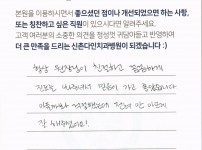 본원을 이용하시면서 좋으셨던 점이나 개선되었으면 하는 사항,
또는 칭찬하고 싶은 직원이 있으시다면 알려주세요.
고객 여러분의 소중한 의견을 정성껏 귀담아듣고 반영하여
더 큰 만족을 드리는 신촌다인치과병원이 되겠습니다 :)
항상 원장님이 친절하고 꼼꼼하게
진료를
아플까봐 걱정했는데 전혀 안 아프게
잘 해주셨어요!